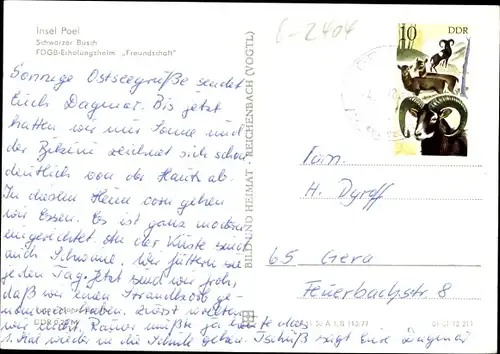 Insel Poel
Schwarzer Busch
FDGB-Erholungsheim „Freundschaft"
6-2404
10 DDR
Sonnige Ostseegrüße sendet
Euch Dagmar. Bis jetzt
hatten wir nur Sonne und
der Bikini zeichnet sich schon
deutlich von der Haut ab.
In diesem Heim vorn gehen
wir Essen. Es ist ganz modern
eingerichtet. An der Küste sind
auch Schwäne. Wir füttern sie
jeden Tag. Jetzt sind wir froh,
daß wir einen Strandkorb ge-
nommen haben. Zuerst wollten
wir nicht. Rainer mußte ja heute das
1. Mal wieder in die Schule gehen. Tschüß sagt Eure Dagmar
BILD UND HEIMAT · REICHENBACH (VOGTL)
Fam.
H. Dyroff
65 Gera
Feuerbachstr. 8